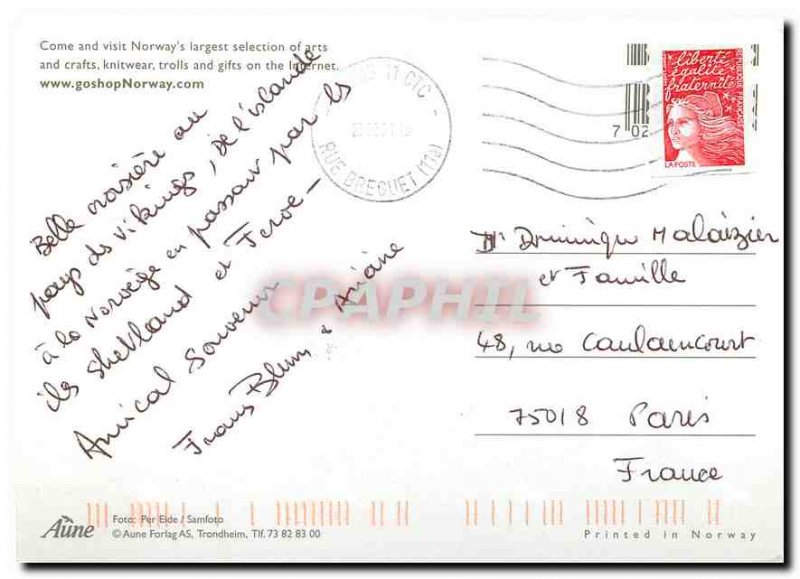 Come and visit Norway's largest selection of arts
and crafts, knitwear, trolls and gifts on the Internet.
www.goshopNorway.com
Belle croisière au
pays des vikings, de l'islande
à la Norvège en passant par les
iles shetland et Feroe -
Amical souvenir
& Ariane
11 CTC -
RUE BREGUET (11e)
7 02
liberté
égalité
fraternité
REPUBLIQUE FRANÇAISE
LA POSTE
Dominique Malaizier
et Famille
48, rue Caulaincourt
75018 Paris
France
CPAPHIL
Aune
Foto: Per Eide / Samfoto
© Aune Forlag AS, Trondheim, Tlf. 73 82 83 00
Printed in Norway